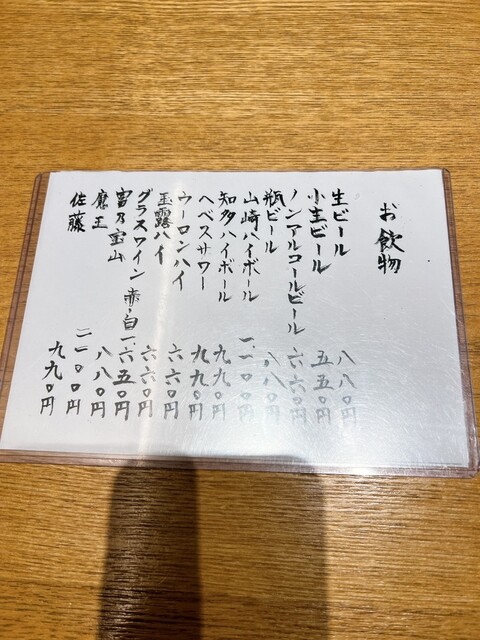 お飲物
生ビール 八八〇円
小生ビール 五五〇円
ノンアルコールビール 六六〇円
瓶ビール 八八〇円
山崎ハイボール 一、一〇〇円
知多ハイボール 九九〇円
ヘベスサワー 九九〇円
ウーロンハイ 六六〇円
玉露ハイ 六六〇円
グラスワイン 赤・白 一、六五〇円
富乃宝山 八八〇円
魔王 二二〇〇円
佐藤 九九〇円